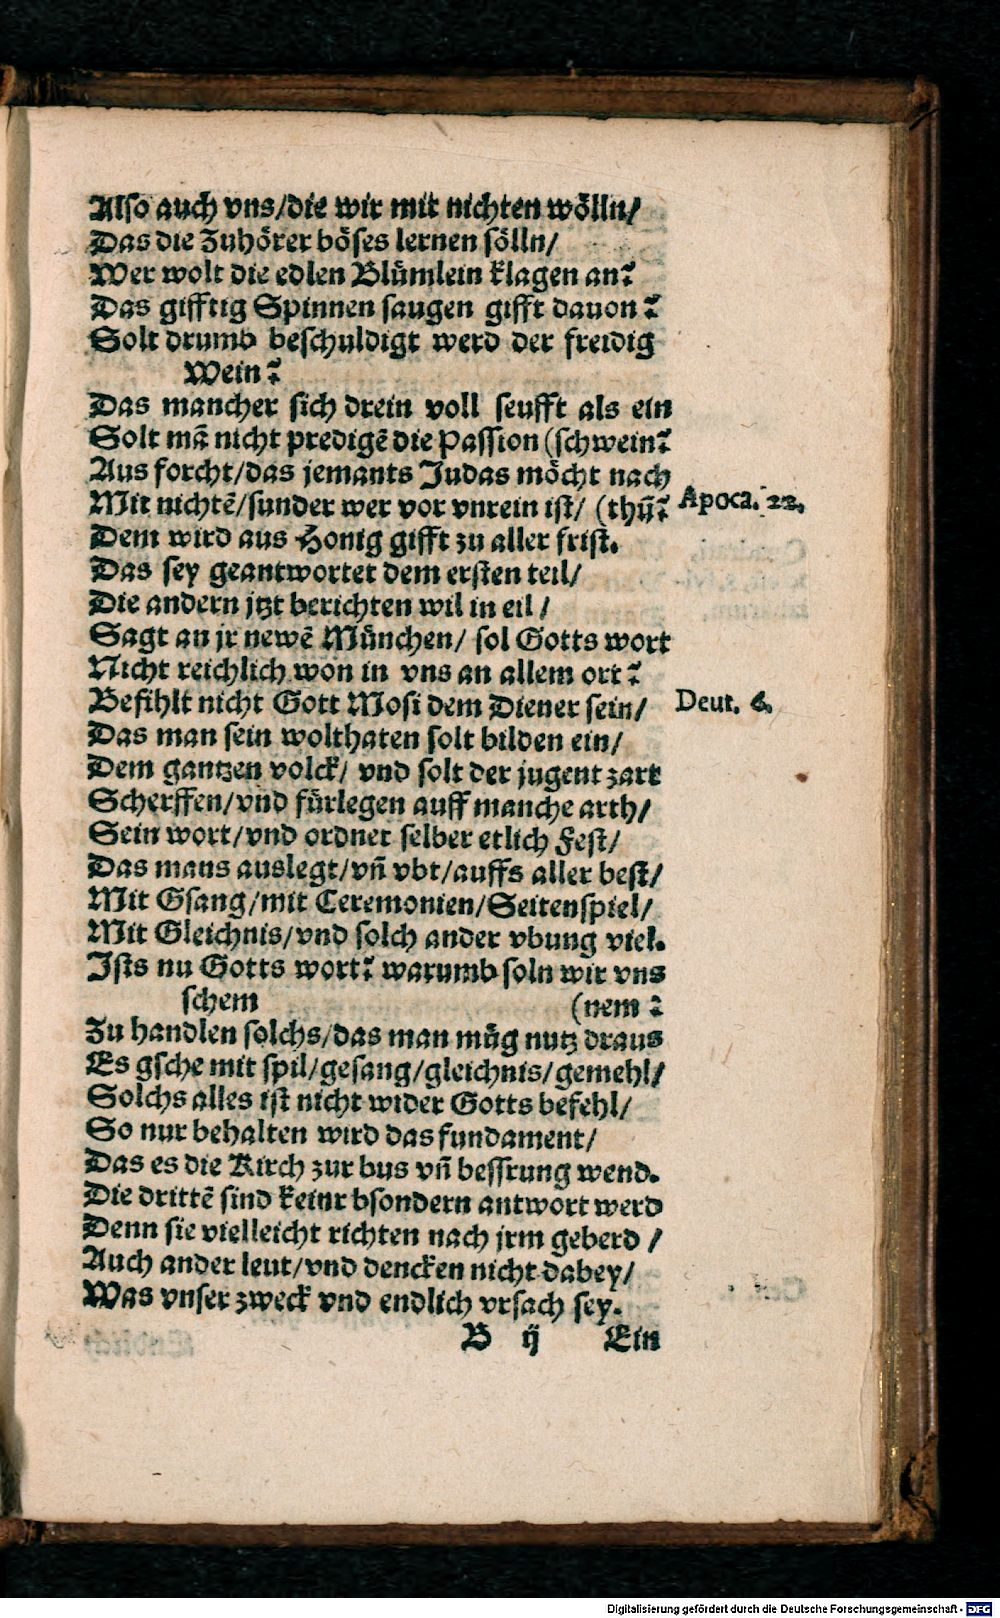 Also auch vns/die wir mit nichten wölln/
Das die Zuhörer böses lernen sölln/
Wer wolt die edlen Blümlein klagen an?
Das gifftig Spinnen saugen gifft dauon?
Solt drumb beschuldigt werd der freidig
Wein?
Das mancher sich drein voll seufft als ein
Solt mā nicht predigē die Passion (schwein?
Aus forcht/das jemants Judas möcht nach
Mit nichtē/sunder wer vor vnrein ist/ (thū? Apoca. 22.
Dem wird aus Honig gifft zu aller frist.
Das sey geantwortet dem ersten teil/
Die andern jtzt berichten wil in eil/
Sagt an jr newē München/ sol Gotts wort
Nicht reichlich won in vns an allem ort?
Befihlt nicht Gott Mosi dem Diener sein/ Deut. 6.
Das man sein wolthaten solt bilden ein/
Dem gantzen volck/ vnd solt der jugent zart
Scherffen/vnd fürlegen auff manche arth/
Sein wort/vnd ordnet selber etlich Fest/
Das mans auslegt/vñ vbt/auffs aller best/
Mit Gsang/mit Ceremonien/Seitenspiel/
Mit Gleichnis/vnd solch ander vbung viel.
Ists nu Gotts wort? warumb soln wir vns
schem (nem?
Zu handlen solchs/das man müg nutz draus
Es gsche mit spil/gesang/gleichnis/gemehl/
Solchs alles ist nicht wider Gotts befehl/
So nur behalten wird das fundament/
Das es die Kirch zur bus vñ bessrung wend.
Die drittē sind keinr bsondern antwort werd
Denn sie vielleicht richten nach jrm geberd /
Auch ander leut/vnd dencken nicht dabey/
Was vnser zweck vnd endlich vrsach sey.
B ij Ein
Digitalisierung gefördert durch die Deutsche Forschungsgemeinschaft - DFG